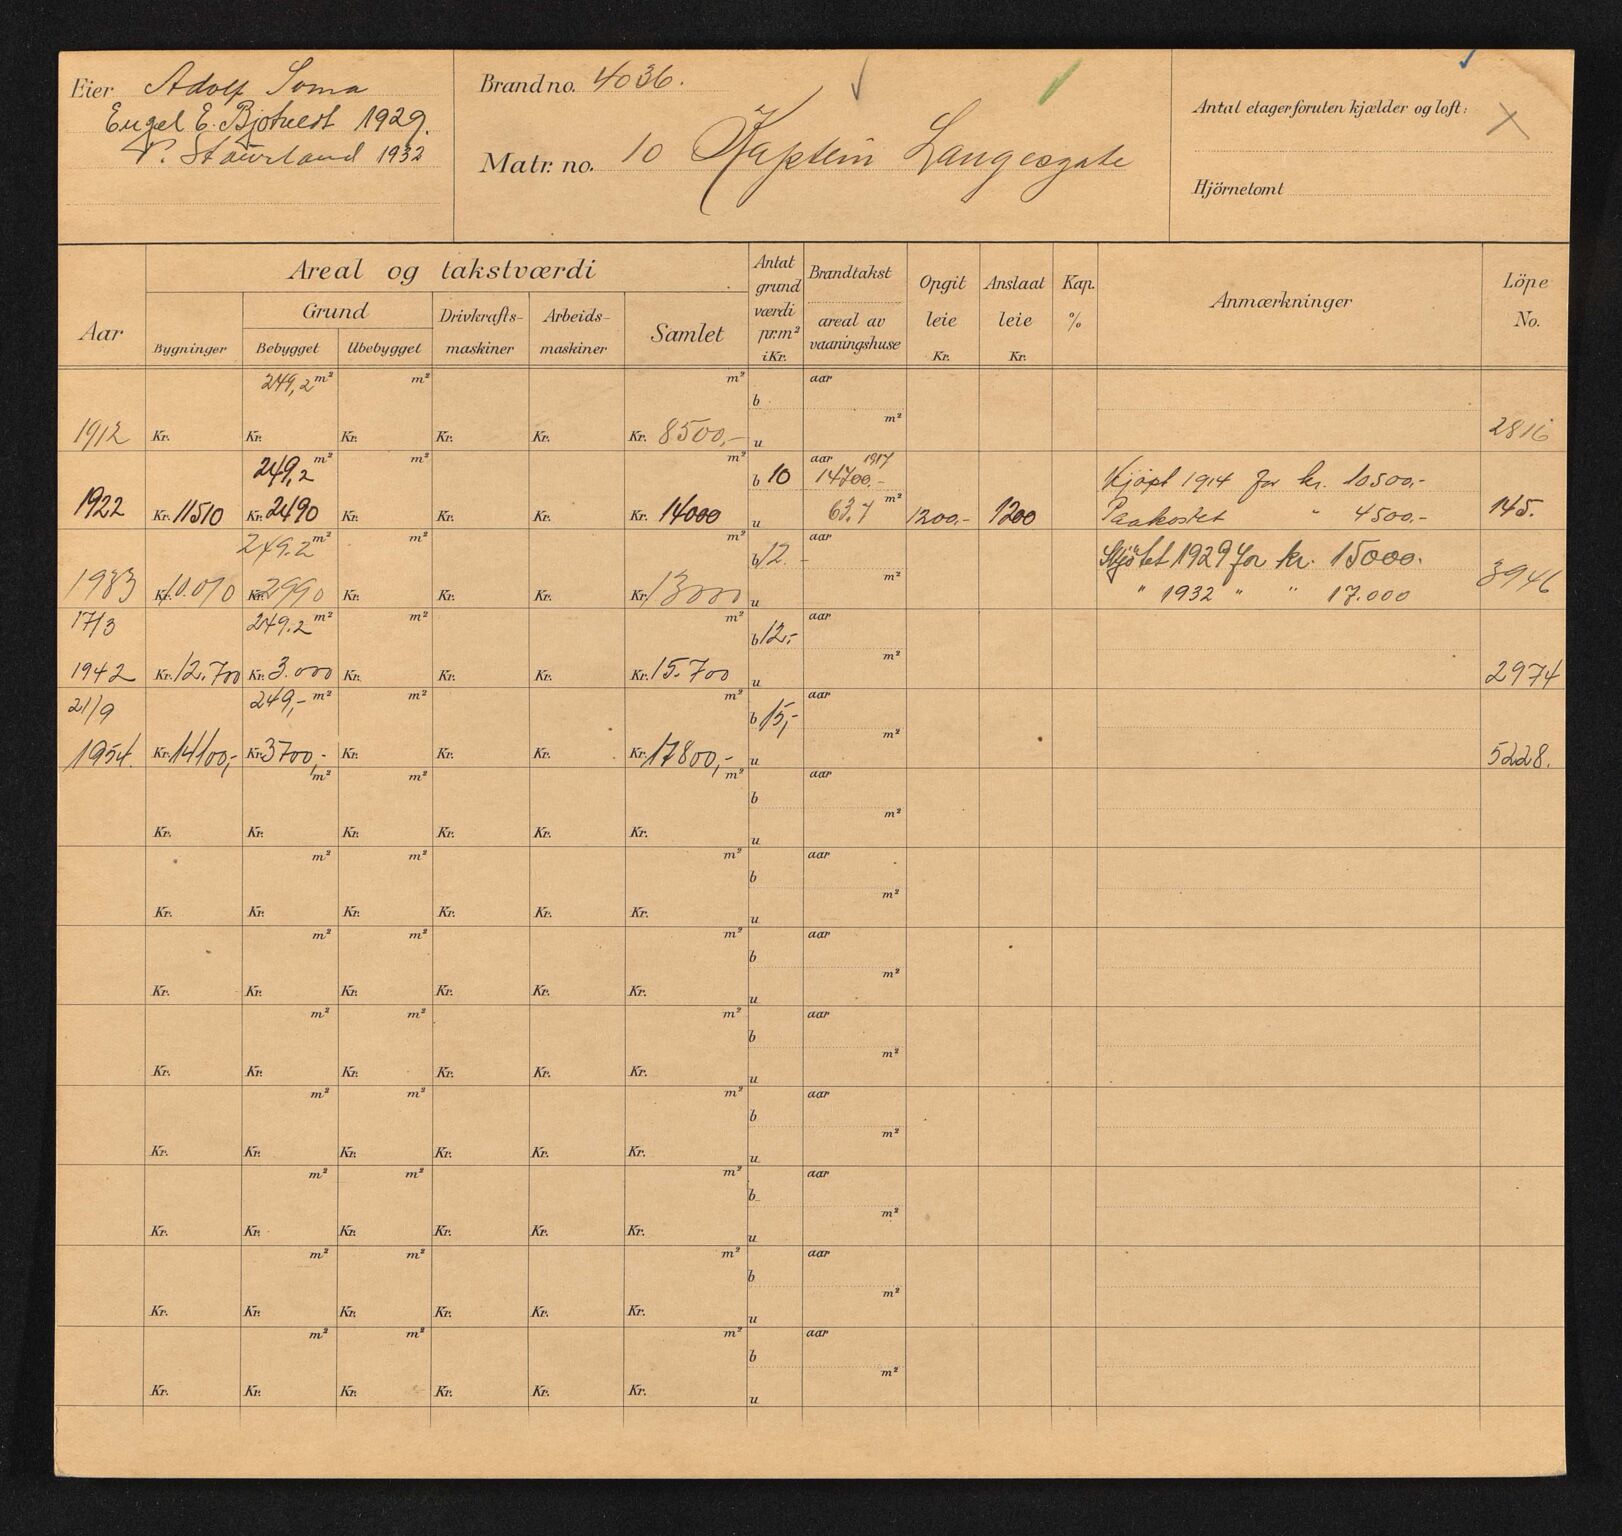 Eier Adolf Soma
Engel E. Bjotvedt 1929.
P. Staurland 1932
Brandno. 4036.
Matr. no. 10 Kaptein Langesgate
Antal etager foruten kjælder og loft: X
Hjörnetomt
Aar
Areal og takstværdi
Grund
Bygninger
Bebygget
Ubebygget
Drivkrafts-
maskiner
Arbeids-
maskiner
Samlet
Antat
grund
værdi
pr.m²
i Kr.
Brandtakst
areal av
vaaningshuse
Opgit
leie
Kr.
Anslaat
leie
Kr.
Kap.
%
Anmærkninger
Löpe
No.
249,2 m² m² m² b aar
1912 Kr. Kr. Kr. Kr. Kr. Kr. 8500,- u m² 2816
249,2 m² m² m² b 10 aar 1917 14700.- Kjöpt 1914 for kr. 10500,-
1922 Kr. 11510 Kr. 2490 Kr. Kr. Kr. Kr. 14000 u 63.7 m² 1200.- 1200 Paakostet " 4500.- 145.
249.2 m² m² m² b 12.- aar Skjötet 1929 for kr. 15000.
1933 Kr. 10.010 Kr. 2990 Kr. Kr. Kr. Kr. 13000 u m² " 1932 " " 17.000 3946
17/3 249.2 m² m² m² b 12,- aar
1942 Kr. 12.700 Kr. 3.000 Kr. Kr. Kr. Kr. 15.700 u m² 2974
21/9 249,- m² m² m² b 15,- aar
1954. Kr. 14100,- Kr. 3700,- Kr. Kr. Kr. Kr. 17800,- u m² 5228.
m² m² m² b aar
Kr. Kr. Kr. Kr. Kr. Kr. u m²
m² m² m² b aar
Kr. Kr. Kr. Kr. Kr. Kr. u m²
m² m² m² b aar
Kr. Kr. Kr. Kr. Kr. Kr. u m²
m² m² m² b aar
Kr. Kr. Kr. Kr. Kr. Kr. u m²
m² m² m² b aar
Kr. Kr. Kr. Kr. Kr. Kr. u m²
m² m² m² b aar
Kr. Kr. Kr. Kr. Kr. Kr. u m²
m² m² m² b aar
Kr. Kr. Kr. Kr. Kr. Kr. u m²
m² m² m² b aar
Kr. Kr. Kr. Kr. Kr. Kr. u m²